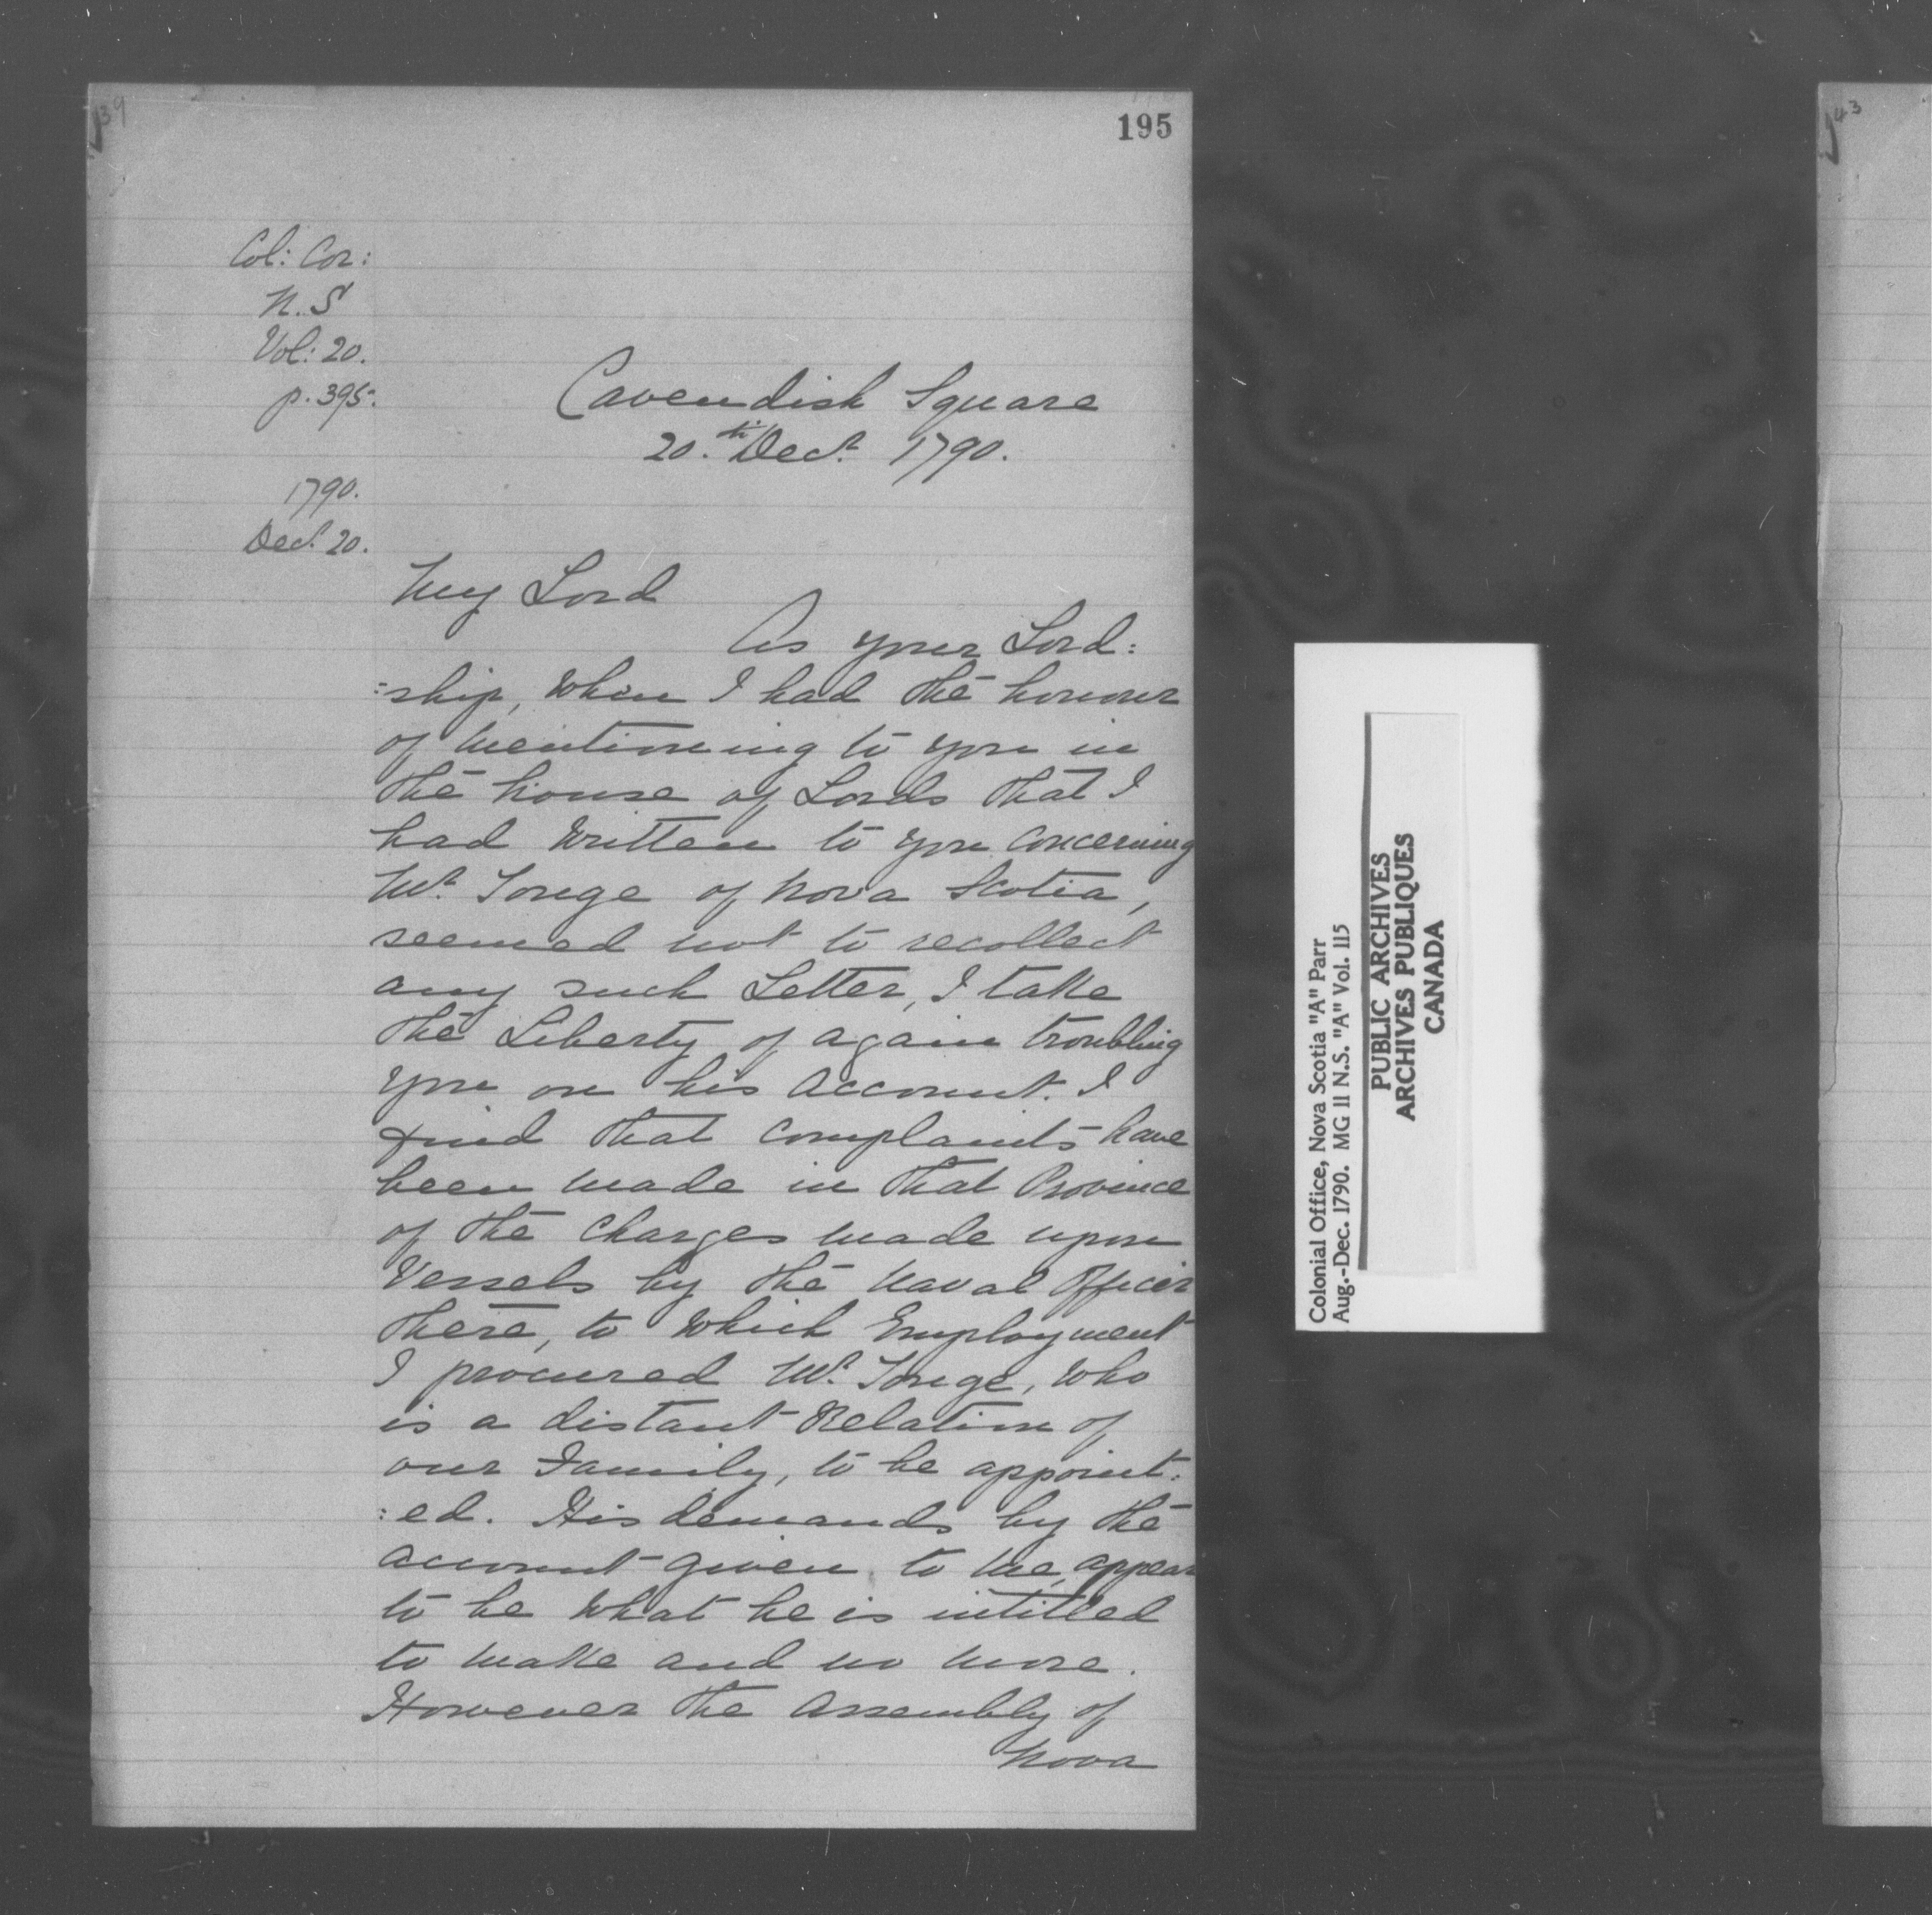 39
195
Col: Cor:
N.S
Vol: 20.
p. 395.
1790.
Decr. 20.
Cavendish Square
20.th Decr. 1790.
My Lord
As your Lord:
:ship, when I had the honour
of mentioning to you in
the house of Lords that I
had written to you concerning
Mr. Tonge of Nova Scotia,
seemed not to recollect
any such Letter, I take
the Liberty of again troubling
you on his account. I
find that complaints have
been made in that Province
of the Charges made upon
Vessels by the Naval Officer
there, to which Employment
I procured Mr. Tonge, who
is a distant Relation of
our Family, to be appoint:
:ed. His demands by the
account given to me, appear
to be what he is intitled
to make and no more.
However the Assembly of
Nova
Colonial Office, Nova Scotia "A" Parr
Aug.-Dec. 1790. MG 11 N.S. "A" Vol. 115
PUBLIC ARCHIVES
ARCHIVES PUBLIQUES
CANADA
43